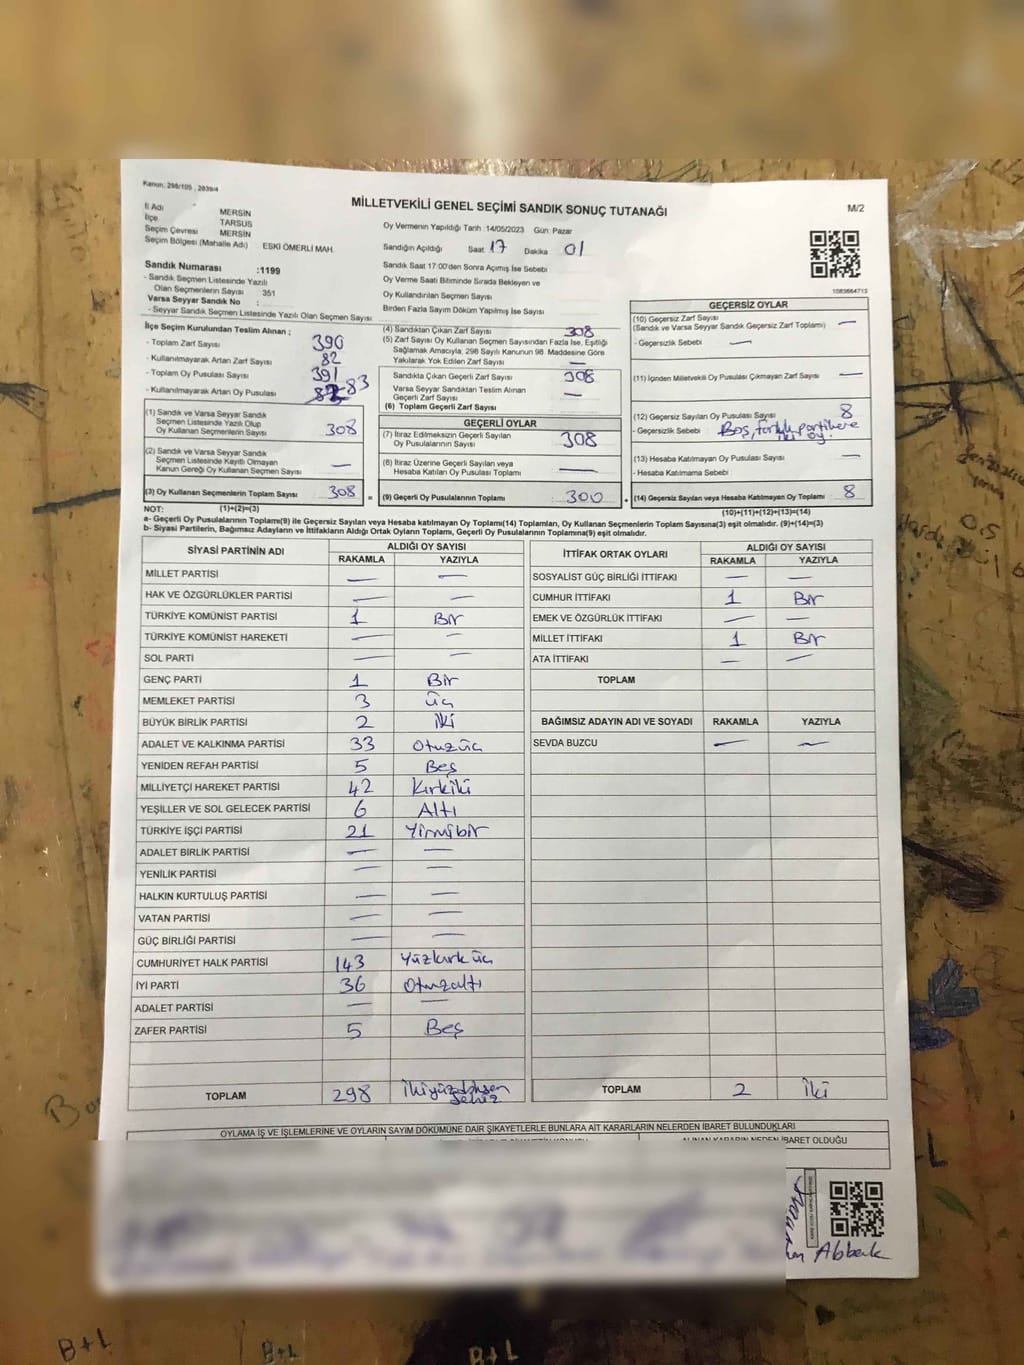 Kanun, 298/105 , 2839/4
MİLLETVEKİLİ GENEL SEÇİMİ SANDIK SONUÇ TUTANAĞI
M/2
İl Adı MERSİN
İlçe TARSUS
Seçim Çevresi MERSİN
Seçim Bölgesi (Mahalle Adı) ESKİ ÖMERLİ MAH.
Oy Vermenin Yapıldığı Tarih :14/05/2023 Gün: Pazar
Sandığın Açıldığı Saat 17 Dakika 01
Sandık Numarası :1199
- Sandık Seçmen Listesinde Yazılı
Olan Seçmenlerin Sayısı 351
Varsa Seyyar Sandık No :
- Seyyar Sandık Seçmen Listesinde Yazılı Olan Seçmen Sayısı:
Sandık Saat 17:00'den Sonra Açımış İse Sebebi
Oy Verme Saati Bitiminde Sırada Bekleyen ve
Oy Kullandırılan Seçmen Sayısı
Birden Fazla Sayım Döküm Yapılmış İse Sayısı
1083664713
İlçe Seçim Kurulundan Teslim Alınan ;
- Toplam Zarf Sayısı 390
- Kullanılmayarak Artan Zarf Sayısı 82
- Toplam Oy Pusulası Sayısı 391
- Kullanılmayarak Artan Oy Pusulası 83
(1) Sandık ve Varsa Seyyar Sandık
Seçmen Listesinde Yazılı Olup
Oy Kullanan Seçmenlerin Sayısı 308
(2) Sandık ve Varsa Seyyar Sandık
Seçmen Listesinde Kayıtlı Olmayan
Kanun Gereği Oy Kullanan Seçmen Sayısı —
(3) Oy Kullanan Seçmenlerin Toplam Sayısı 308 =
(4) Sandıktan Çıkan Zarf Sayısı 308
(5) Zarf Sayısı Oy Kullanan Seçmen Sayısından Fazla İse, Eşitliği
Sağlamak Amacıyla, 298 Sayılı Kanunun 98. Maddesine Göre
Yakılarak Yok Edilen Zarf Sayısı —
Sandıkta Çıkan Geçerli Zarf Sayısı 308
Varsa Seyyar Sandıktan Teslim Alınan
Geçerli Zarf Sayısı —
(6) Toplam Geçerli Zarf Sayısı
GEÇERLİ OYLAR
(7) İtiraz Edilmeksizin Geçerli Sayılan
Oy Pusulalarının Sayısı 308
(8) İtiraz Üzerine Geçerli Sayılan veya
Hesaba Katılan Oy Pusulası Toplamı —
(9) Geçerli Oy Pusulalarının Toplamı 300 +
GEÇERSİZ OYLAR
(10) Geçersiz Zarf Sayısı
(Sandık ve Varsa Seyyar Sandık Geçersiz Zarf Toplamı) —
- Geçersizlik Sebebi —
(11) İçinden Milletvekili Oy Pusulası Çıkmayan Zarf Sayısı —
(12) Geçersiz Sayılan Oy Pusulası Sayısı 8
- Geçersizlik Sebebi Boş, farklı partilere
iki oy.
(13) Hesaba Katılmayan Oy Pusulası Sayısı —
- Hesaba Katılmama Sebebi
(14) Geçersiz Sayılan veya Hesaba Katılmayan Oy Toplamı 8
NOT: (1)+(2)=(3) (10)+(11)+(12)+(13)=(14)
a- Geçerli Oy Pusulalarının Toplamı(9) ile Geçersiz Sayılan veya Hesaba katılmayan Oy Toplamı(14) Toplamları, Oy Kullanan Seçmenlerin Toplam Sayısına(3) eşit olmalıdır. (9)+(14)=(3)
b- Siyasi Partilerin, Bağımsız Adayların ve İttifakların Aldığı Ortak Oyların Toplamı, Geçerli Oy Pusulalarının Toplamına(9) eşit olmalıdır.
SİYASİ PARTİNİN ADI ALDIĞI OY SAYISI
RAKAMLA YAZIYLA
MİLLET PARTİSİ — —
HAK VE ÖZGÜRLÜKLER PARTİSİ — —
TÜRKİYE KOMÜNİST PARTİSİ 1 Bir
TÜRKİYE KOMÜNİST HAREKETİ — —
SOL PARTİ — —
GENÇ PARTİ 1 Bir
MEMLEKET PARTİSİ 3 üç
BÜYÜK BİRLİK PARTİSİ 2 iki
ADALET VE KALKINMA PARTİSİ 33 Otuzüç
YENİDEN REFAH PARTİSİ 5 Beş
MİLLİYETÇİ HAREKET PARTİSİ 42 Kırkiki
YEŞİLLER VE SOL GELECEK PARTİSİ 6 Altı
TÜRKİYE İŞÇİ PARTİSİ 21 Yirmibir
ADALET BİRLİK PARTİSİ — —
YENİLİK PARTİSİ — —
HALKIN KURTULUŞ PARTİSİ — —
VATAN PARTİSİ — —
GÜÇ BİRLİĞİ PARTİSİ — —
CUMHURİYET HALK PARTİSİ 143 Yüzkırküç
İYİ PARTİ 36 Otuzaltı
ADALET PARTİSİ — —
ZAFER PARTİSİ 5 Beş
TOPLAM 298 İkiyüzdoksan
sekiz
İTTİFAK ORTAK OYLARI ALDIĞI OY SAYISI
RAKAMLA YAZIYLA
SOSYALİST GÜÇ BİRLİĞİ İTTİFAKI — —
CUMHUR İTTİFAKI 1 Bir
EMEK VE ÖZGÜRLÜK İTTİFAKI — —
MİLLET İTTİFAKI 1 Bir
ATA İTTİFAKI — —
TOPLAM
BAĞIMSIZ ADAYIN ADI VE SOYADI RAKAMLA YAZIYLA
SEVDA BUZCU — —
TOPLAM 2 iki
OYLAMA İŞ VE İŞLEMLERİNE VE OYLARIN SAYIM DÖKÜMÜNE DAİR ŞİKAYETLERLE BUNLARA AİT KARARLARIN NELERDEN İBARET BULUNDUKLARI
ALINAN KARARIN NEDEN İBARET OLDUĞU
B+L
B+L
B+L